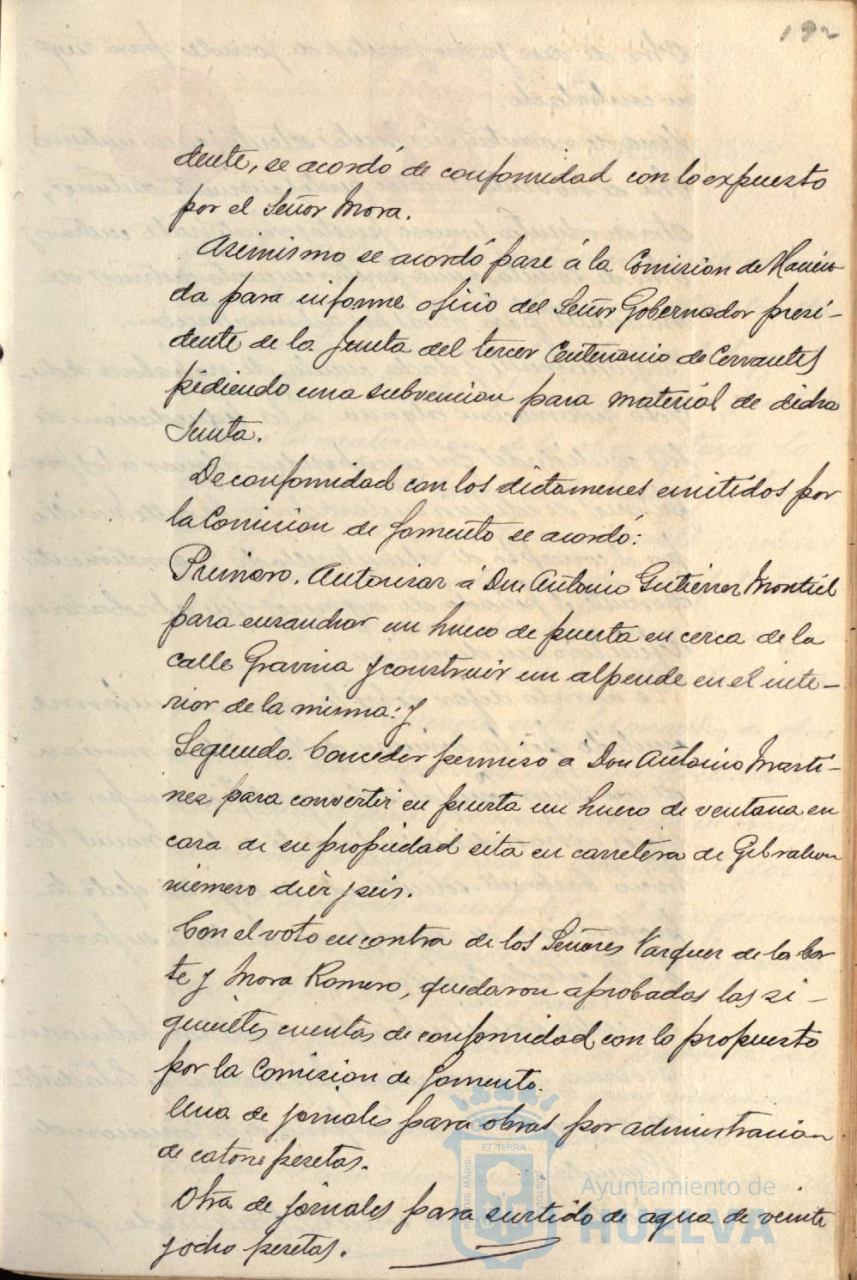 192
dente, se acordó de conformidad con lo expuesto
por el Señor Mora.
Asimismo se acordó pase á la Comision de Hacien
da para informe oficio del Señor Gobernador presi-
dente de la Junta del tercer Centenario de Cervantes
pidiendo una subvencion para material de dicha
Junta.
De conformidad con los dictamenes emitidos por
la Comision de Fomento se acordó:
Primero. Autorizar á Don Antonio Gutiérrez Montiel
para ensanchar un hueco de puerta en cerca de la
calle Gravina y construir un alpende en el inte-
rior de la misma: y
Segundo. Conceder permiso á Don Antonio Martí-
nez para convertir en puerta un hueco de ventana en
casa de su propiedad sita en carretera de Gibraleon
número diéz y seis.
Con el voto en contra de los Señores Vazquez de la Cor
te y Mora Romero, quedaron aprobadas las si-
guientes cuentas de conformidad con lo propuesto
por la Comision de Fomento.
Una de jornales para obras por administracion
de catorce pesetas.
Otra de jornales para surtido de agua de veinte
y ocho pesetas.
ET TERRA
Ayuntamiento de
HUELVA